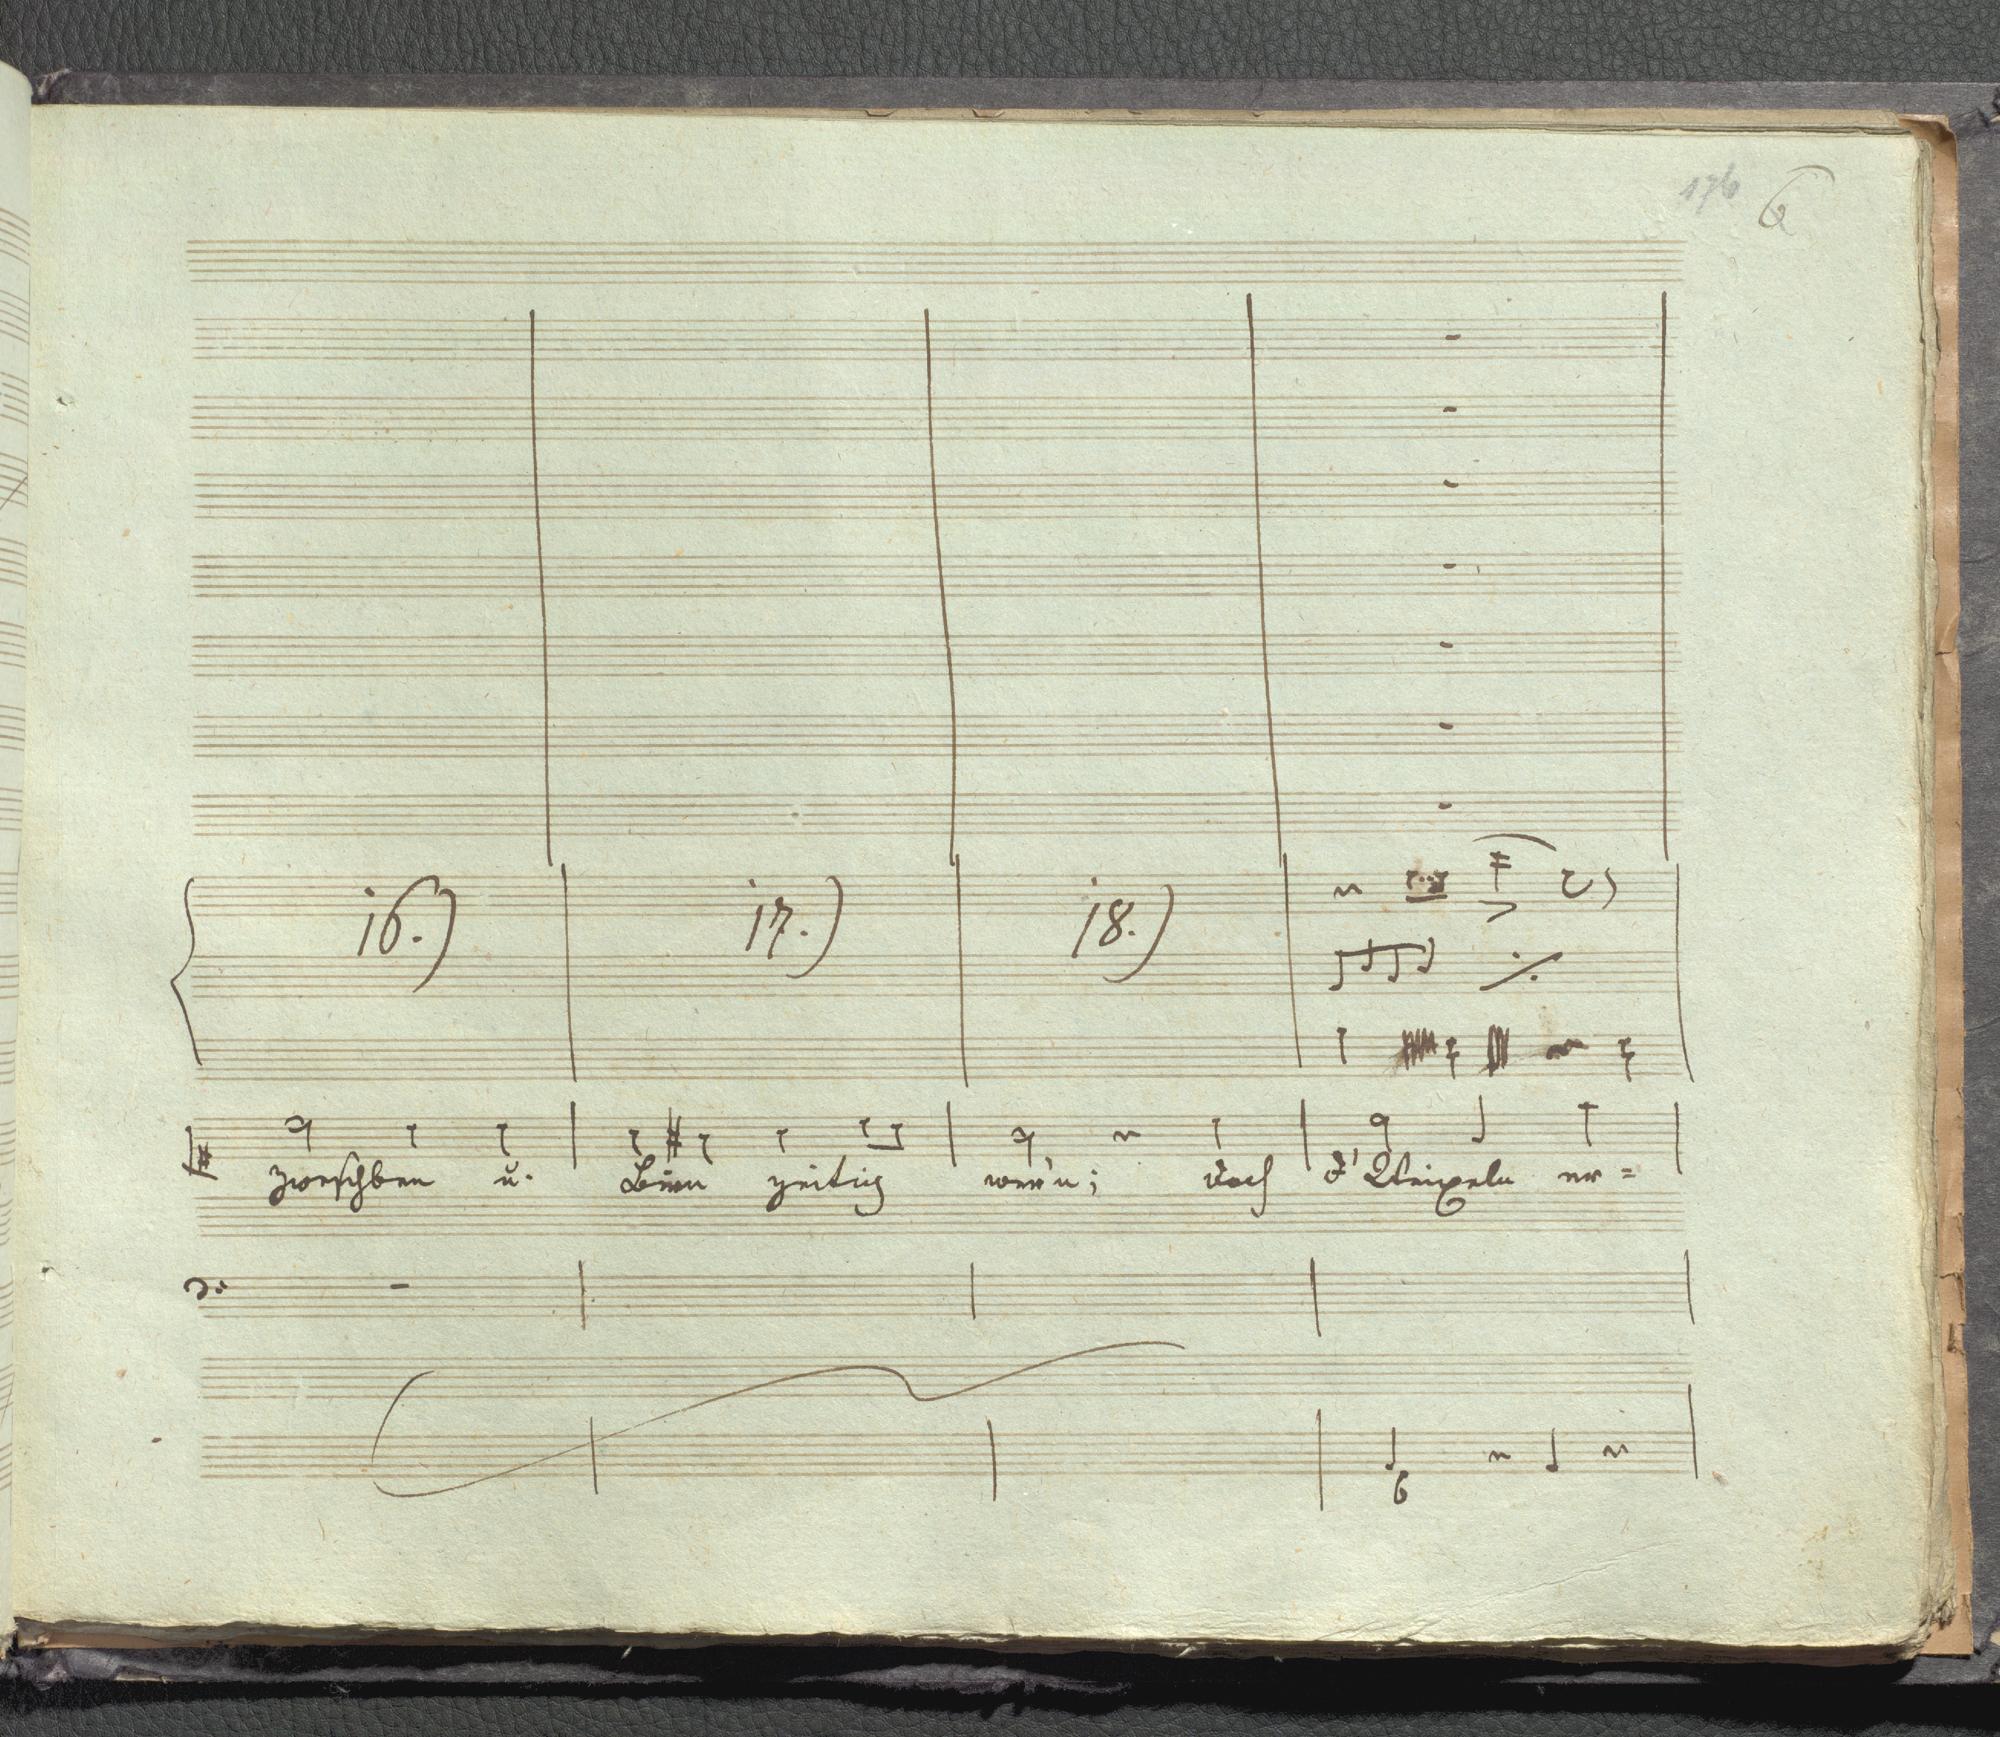 176 6
16.) 17.) 18.)
zweschben u. Birn zeitig wer'n; doch d' Weixeln er=
6